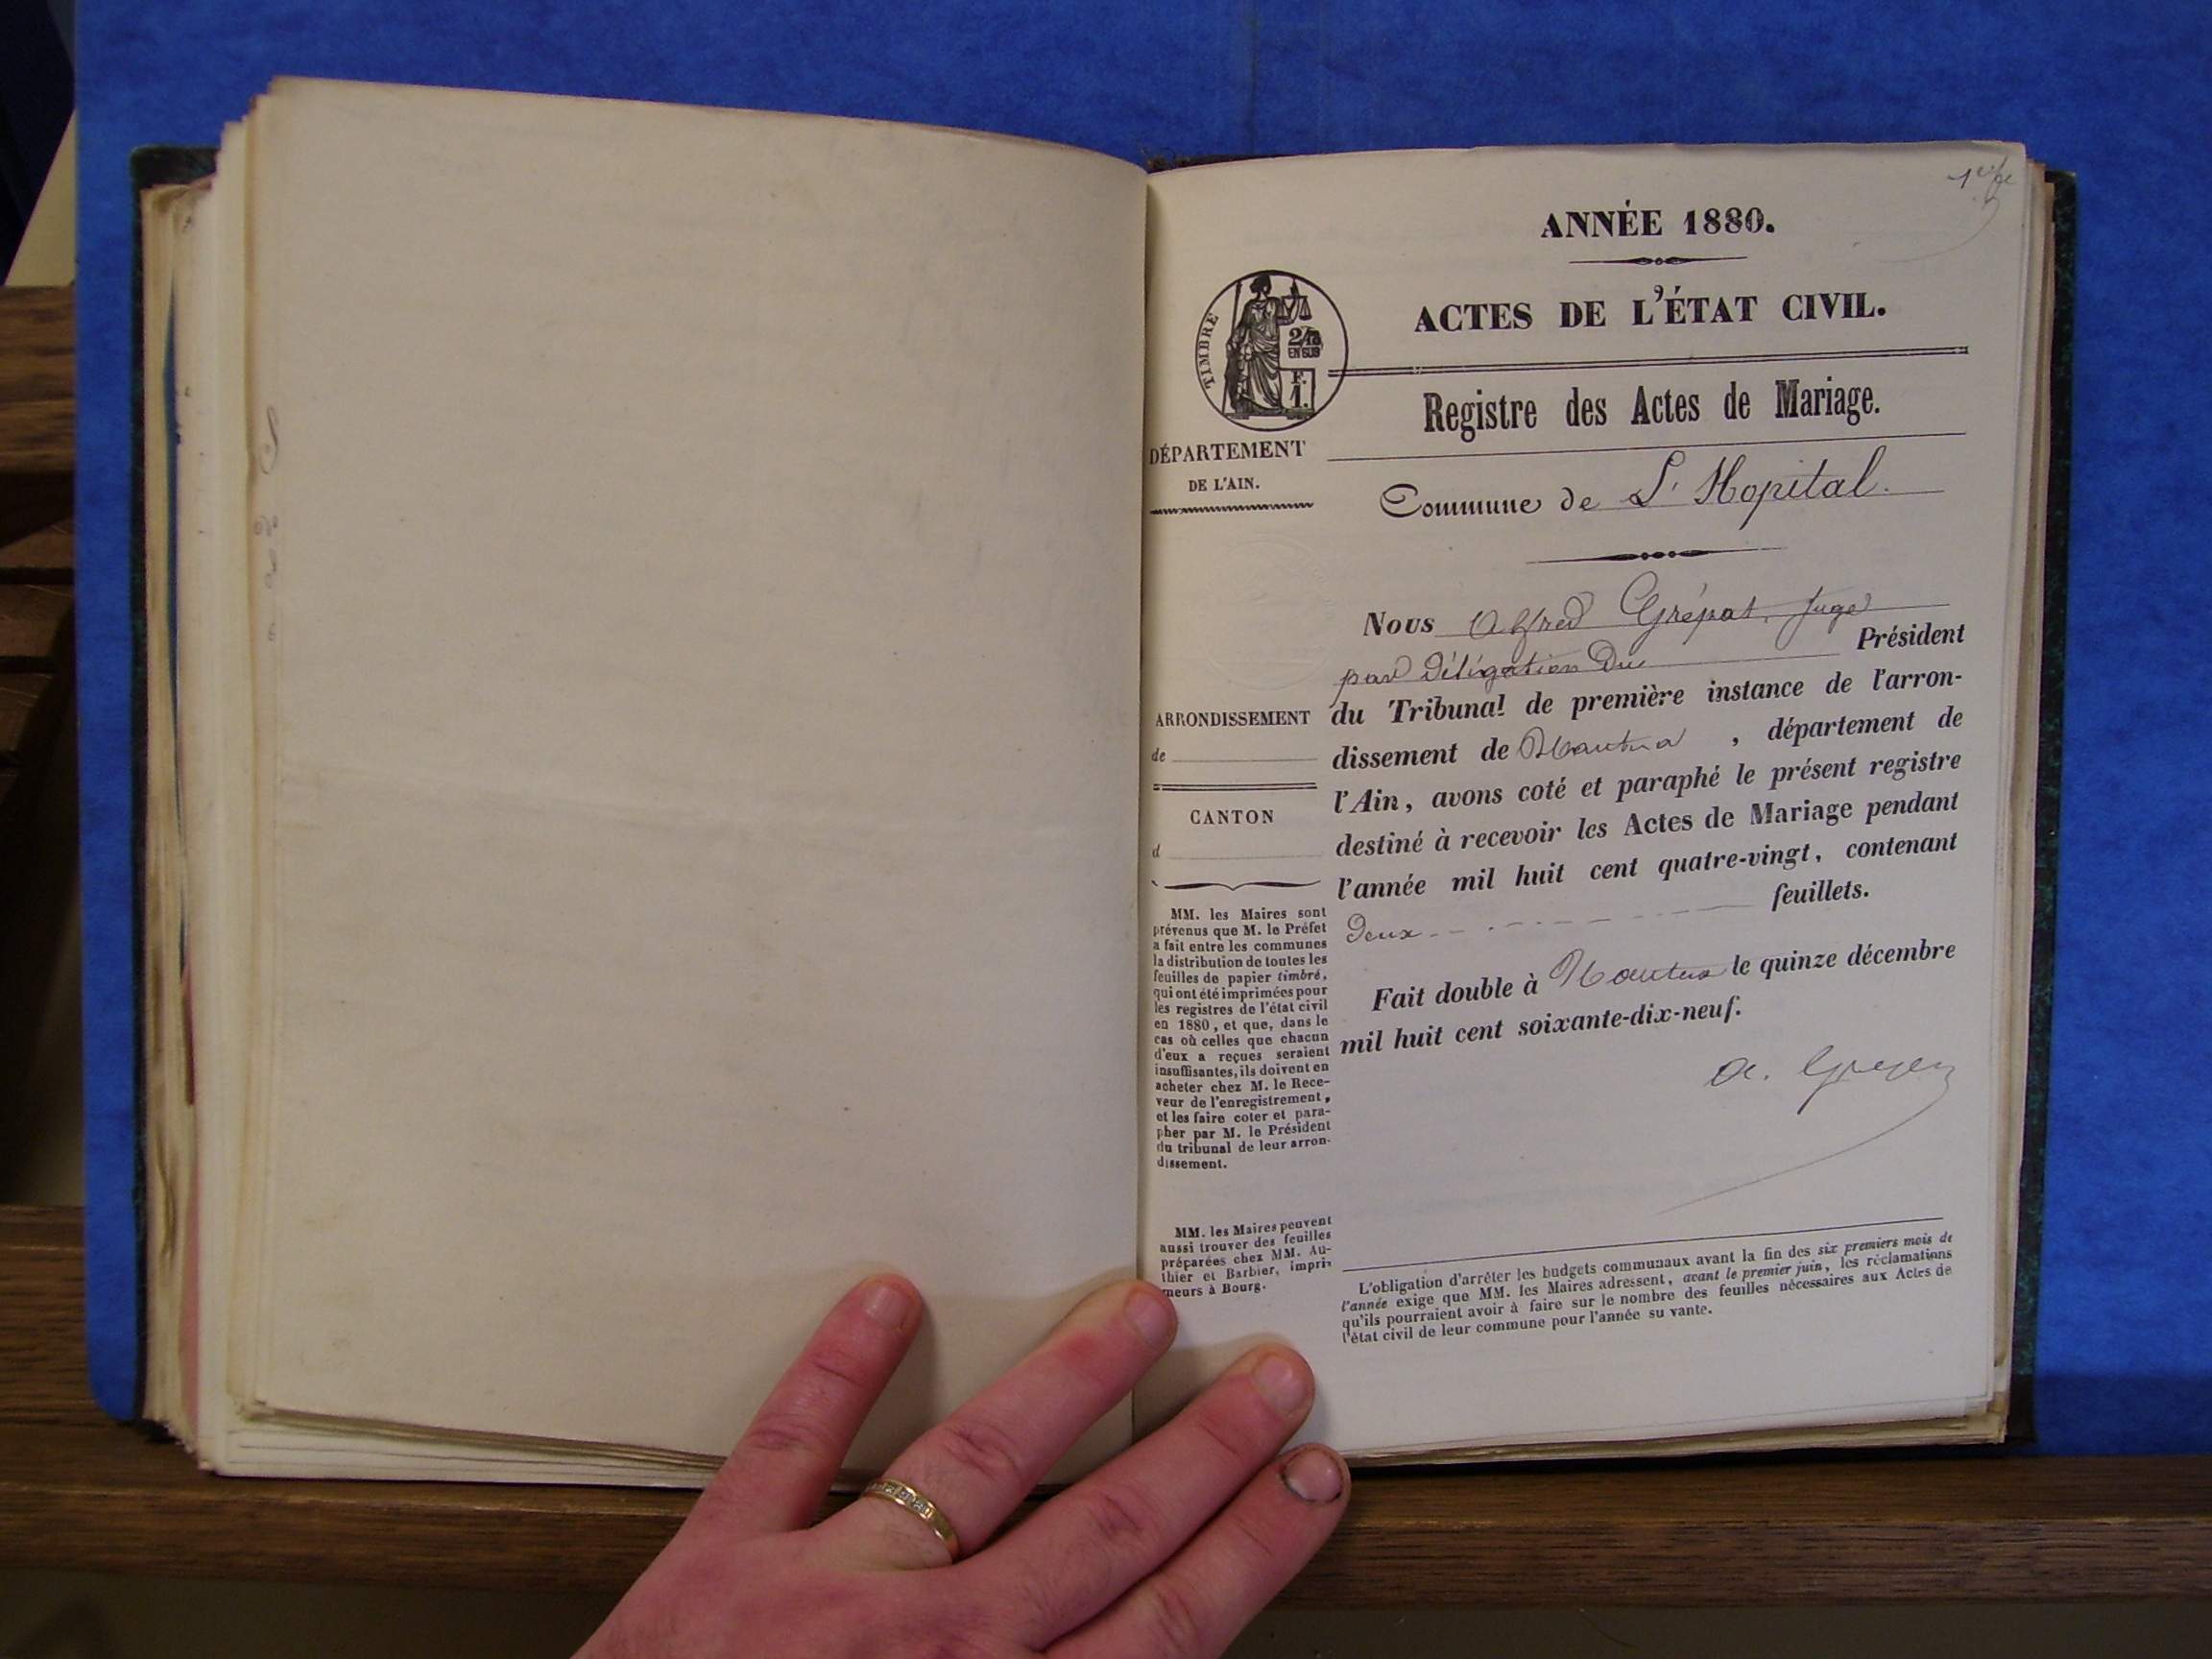 1er fe
ANNÉE 1880.
ACTES DE L'ÉTAT CIVIL.
TIMBRE
2/10
EN SUS
F.
1.
Registre des Actes de Mariage.
DÉPARTEMENT
DE L'AIN.
Commune de L'Hopital.
Nous Alfred Grépat, Juge
par Délégation Du Président
du Tribunal de première instance de l'arron-
dissement de Nantua, département de
l'Ain, avons coté et paraphé le présent registre
destiné à recevoir les Actes de Mariage pendant
l'année mil huit cent quatre-vingt, contenant
Deux feuillets.
Fait double à Nantua le quinze décembre
mil huit cent soixante-dix-neuf.
ARRONDISSEMENT
de
CANTON
d
MM. les Maires sont
prévenus que M. le Préfet
a fait entre les communes
la distribution de toutes les
feuilles de papier timbré,
qui ont été imprimées pour
les registres de l'état civil
en 1880, et que, dans le
cas où celles que chacun
d'eux a reçues seraient
insuffisantes, ils doivent en
acheter chez M. le Rece-
veur de l'enregistrement,
et les faire coter et para-
pher par M. le Président
du tribunal de leur arron-
dissement.
MM. les Maires peuvent
aussi trouver des feuilles
préparées chez MM. Au-
thier et Barbier, impri-
meurs à Bourg.
L'obligation d'arrêter les budgets communaux avant la fin des six premiers mois de
l'année exige que MM. les Maires adressent, avant le premier juin, les réclamations
qu'ils pourraient avoir à faire sur le nombre des feuilles nécessaires aux Actes de
l'état civil de leur commune pour l'année su vante.